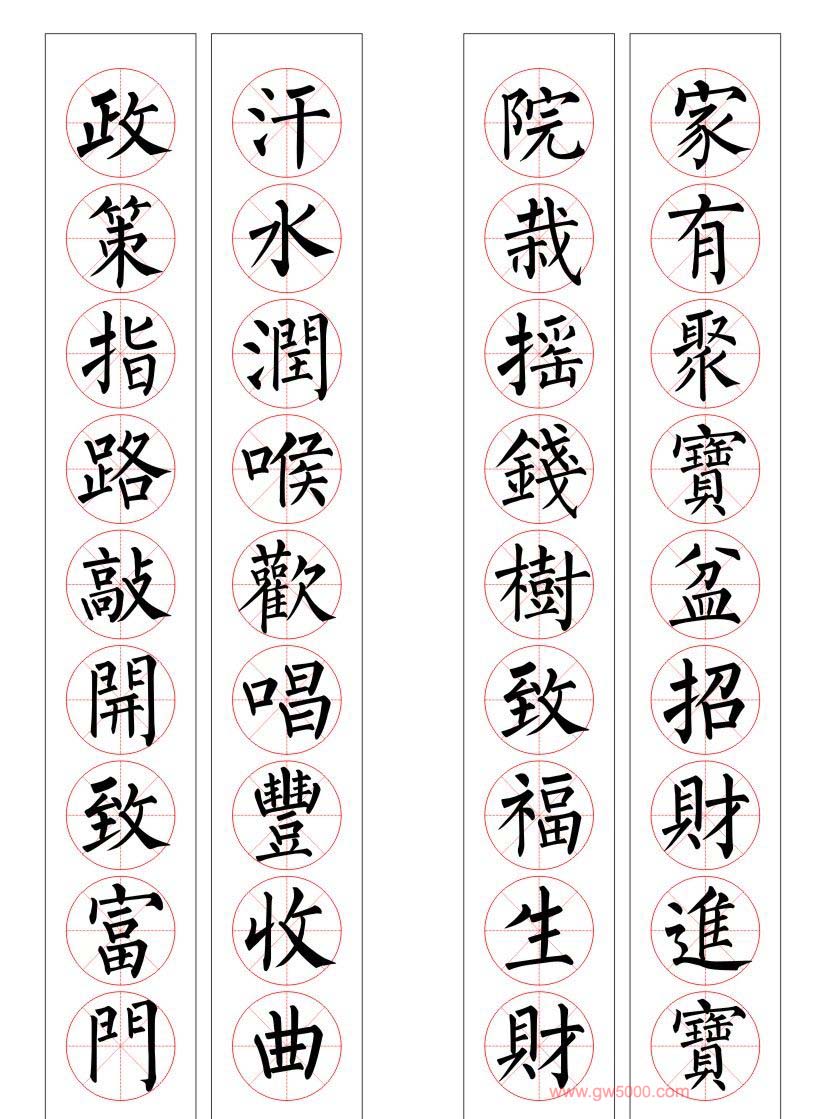 家有聚寶盆招財進寶
院栽摇錢樹致福生財
汗水潤喉歡唱豐收曲
政策指路敲開致富門
www.gw5000.com